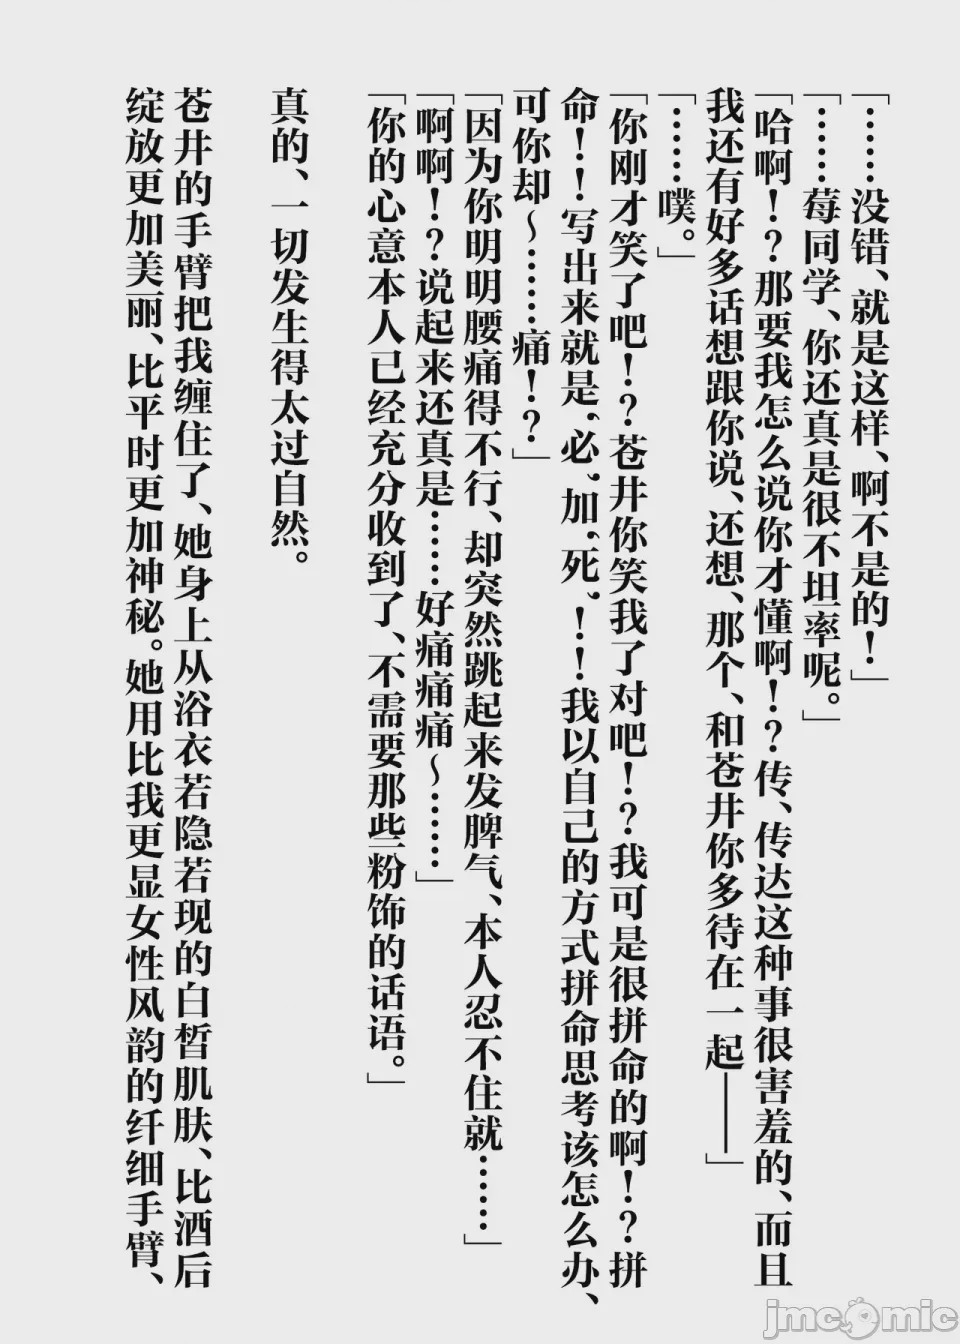 「……没错、就是这样、啊不是的！」
「……莓同学、你还真是很不坦率呢。」
「哈啊！？那要我怎么说你才懂啊！？传、传达这种事很害羞的、而且
我还有好多话想跟你说、还想、那个、和苍井你多待在一起——」
「……噗。」
「你刚才笑了吧！？苍井你笑我了对吧！？我可是很拼命的啊！？拼
命！！写出来就是，必，加，死，！！我以自己的方式拼命思考该怎么办、
可你却～……痛！？」
「因为你明明腰痛得不行、却突然跳起来发脾气、本人忍不住就……」
「啊啊！？说起来还真是……好痛痛痛～……」
「你的心意本人已经充分收到了、不需要那些粉饰的话语。」
真的、一切发生得太过自然。
苍井的手臂把我缠住了、她身上从浴衣若隐若现的白皙肌肤、比酒后
绽放更加美丽、比平时更加神秘。她用比我更显女性风韵的纤细手臂、
jmcomic